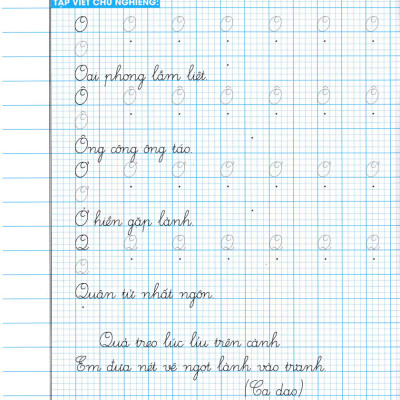 TẬP VIẾT CHỮ NGHIÊNG:
O O O O O O O
O
Oai phong lẫm liệt.
Ô Ô Ô Ô Ô Ô Ô
Ô
Ông công ông táo.
Ơ Ơ Ơ Ơ Ơ Ơ Ơ
Ơ
Ở hiền gặp lành.
Q Q Q Q Q Q Q
Q
Quân tử nhất ngôn.
Quả treo lúc lỉu trên cành
Em đưa nét vẽ ngọt lành vào tranh.
(Ca dao)